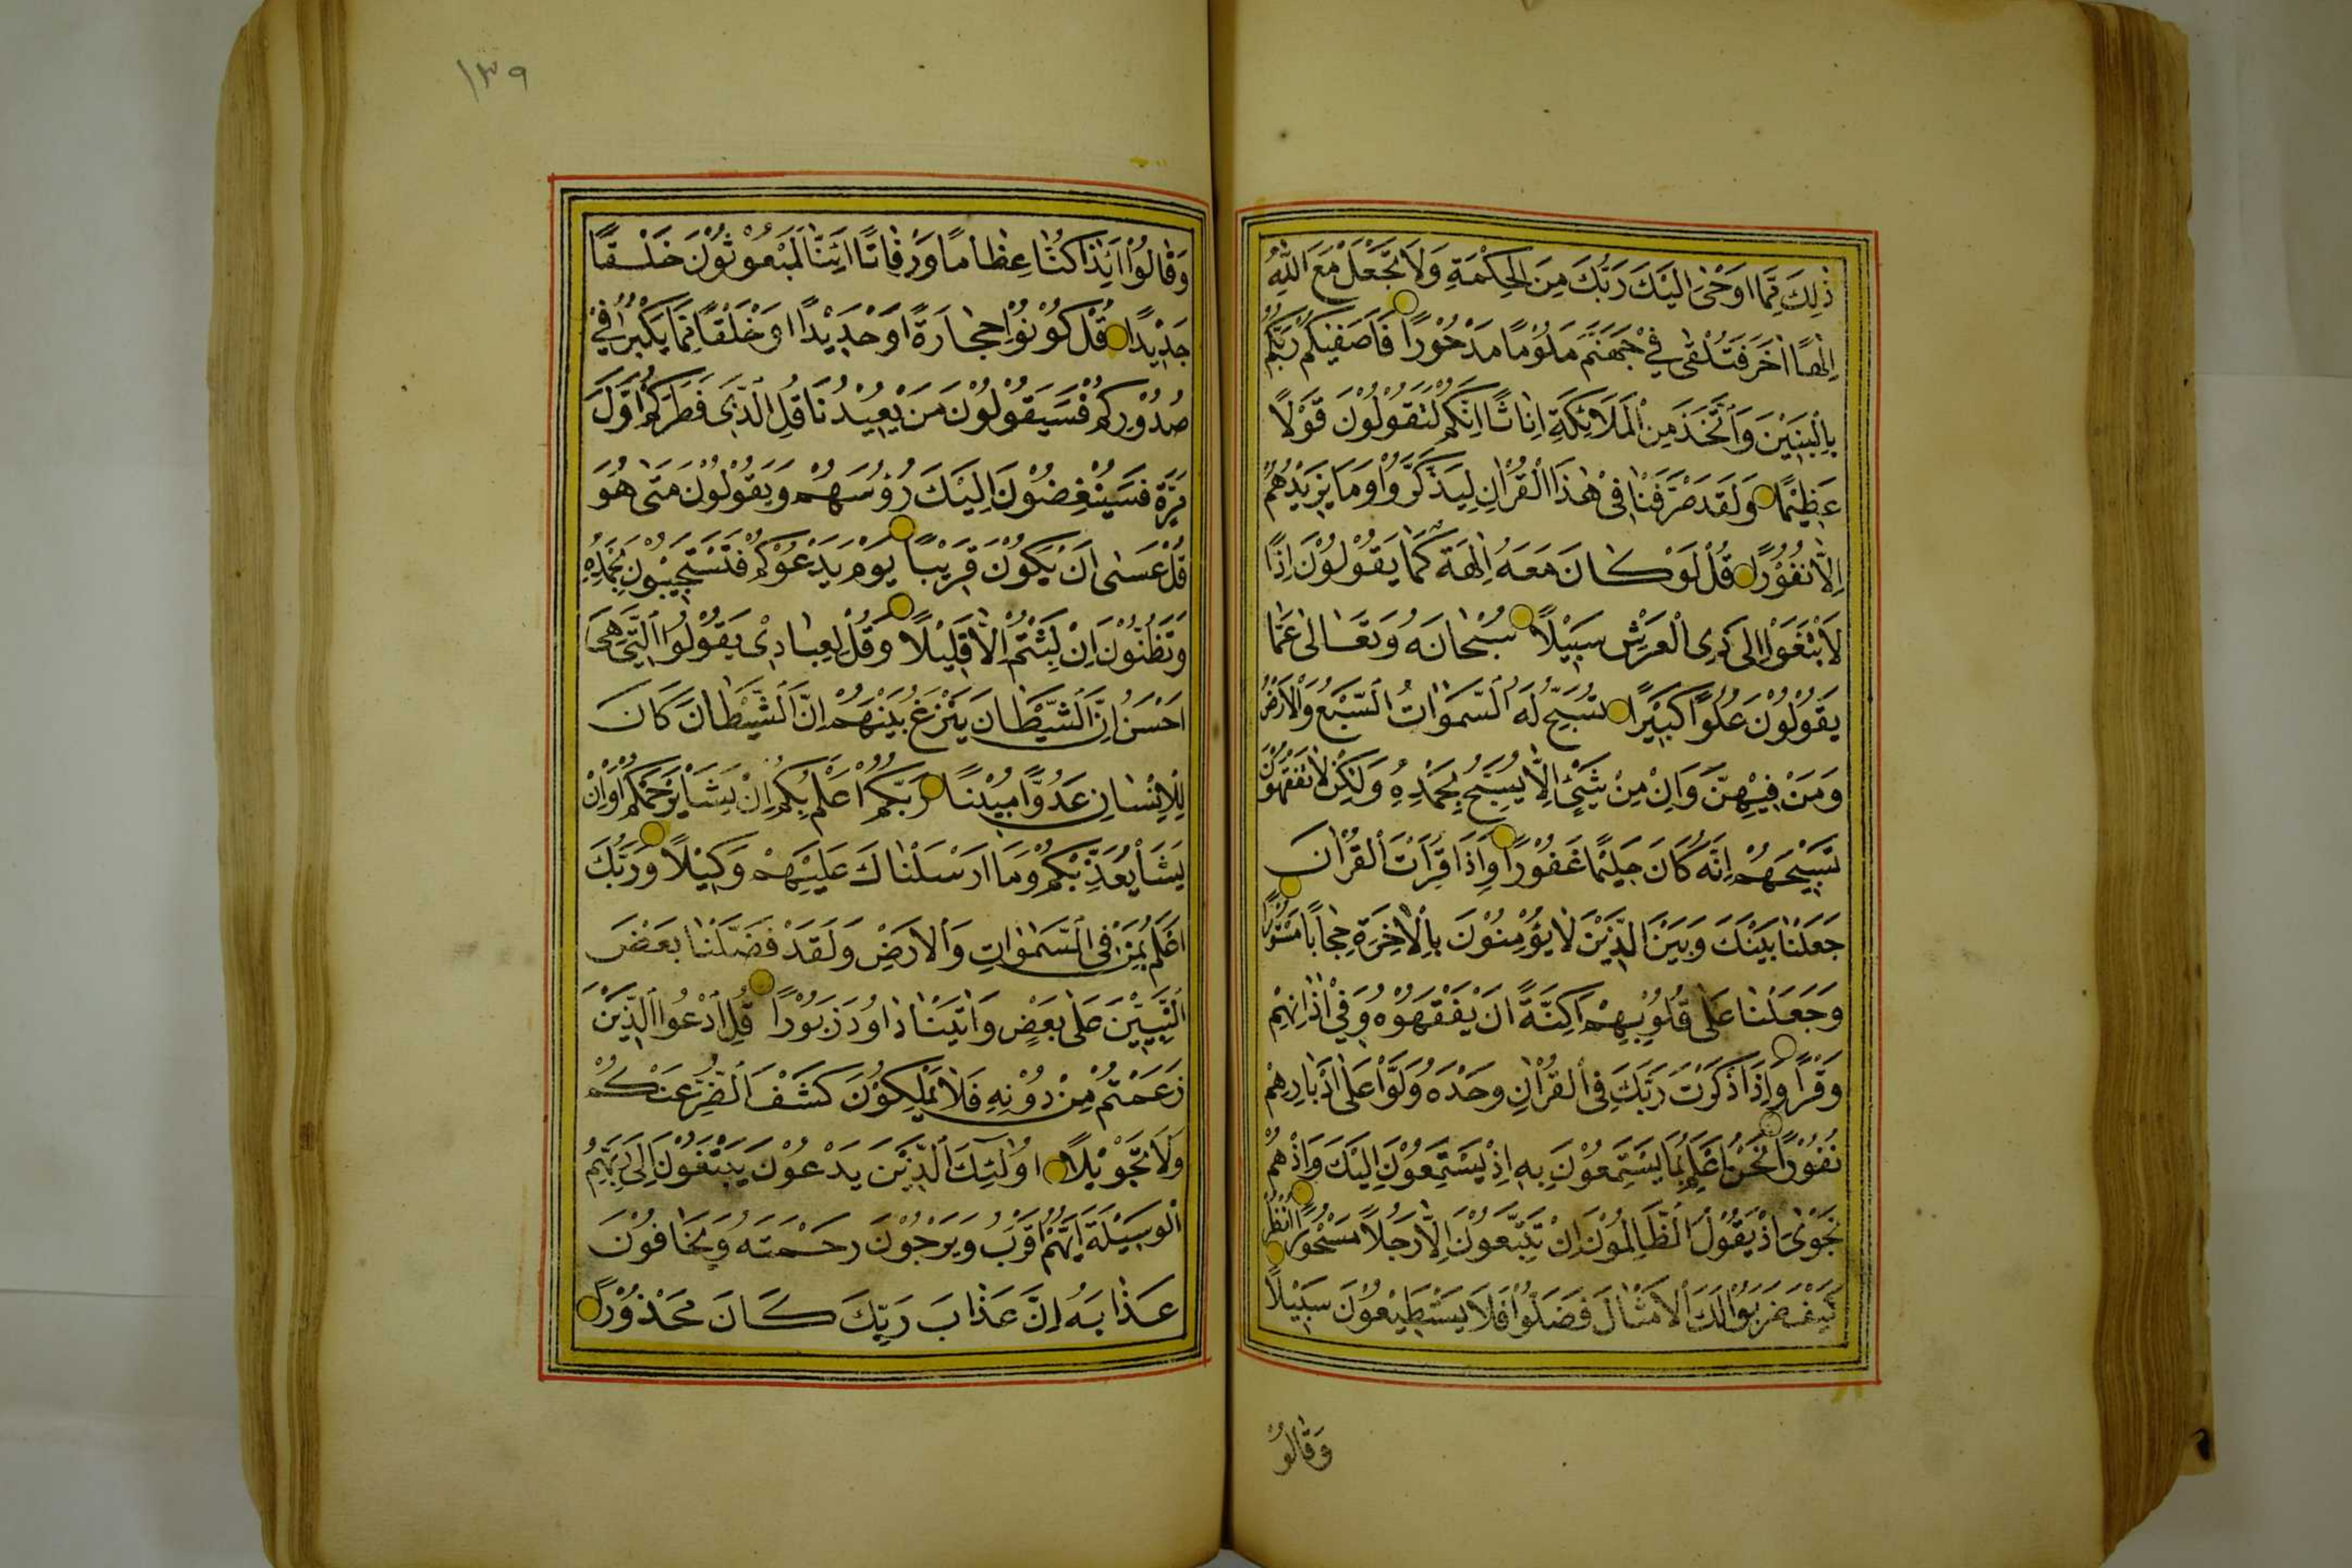 ذٰلِكَ مِمَّا اَوْحٰى اِلَيْكَ رَبُّكَ مِنَ الْحِكْمَةِ وَلَا تَجْعَلْ مَعَ اللّٰهِ
اِلٰهًا اٰخَرَ فَتُلْقٰى فِي جَهَنَّمَ مَلُوْمًا مَدْحُوْرًا فَاَصْفٰيكُمْ رَبُّكُمْ
بِالْبَنِيْنَ وَاتَّخَذَ مِنَ الْمَلَائِكَةِ اِنَاثًا اِنَّكُمْ لَتَقُوْلُوْنَ قَوْلًا
عَظِيْمًا وَلَقَدْ صَرَّفْنَا فِي هٰذَا الْقُرْاٰنِ لِيَذَّكَّرُوْا وَمَا يَزِيْدُهُمْ
اِلَّا نُفُوْرًا قُلْ لَوْ كَانَ مَعَهُ اٰلِهَةٌ كَمَا يَقُوْلُوْنَ اِذًا
لَابْتَغَوْا اِلٰى ذِى الْعَرْشِ سَبِيْلًا سُبْحَانَهُ وَتَعَالٰى عَمَّا
يَقُوْلُوْنَ عُلُوًّا كَبِيْرًا تُسَبِّحُ لَهُ السَّمٰوَاتُ السَّبْعُ وَالْاَرْضُ
وَمَنْ فِيْهِنَّ وَاِنْ مِنْ شَيْئٍ اِلَّا يُسَبِّحُ بِحَمْدِهِ وَلٰكِنْ لَا تَفْقَهُوْنَ
تَسْبِيْحَهُمْ اِنَّهُ كَانَ حَلِيْمًا غَفُوْرًا وَاِذَا قَرَأْتَ الْقُرْاٰنَ
جَعَلْنَا بَيْنَكَ وَبَيْنَ الَّذِيْنَ لَا يُؤْمِنُوْنَ بِالْاٰخِرَةِ حِجَابًا مَسْتُوْرًا
وَجَعَلْنَا عَلٰى قُلُوْبِهِمْ اَكِنَّةً اَنْ يَفْقَهُوْهُ وَفِيْ اٰذَانِهِمْ
وَقْرًا وَاِذَا ذَكَرْتَ رَبَّكَ فِي الْقُرْاٰنِ وَحْدَهُ وَلَّوْا عَلٰى اَدْبَارِهِمْ
نُفُوْرًا نَحْنُ اَعْلَمُ بِمَا يَسْتَمِعُوْنَ بِهِ اِذْ يَسْتَمِعُوْنَ اِلَيْكَ وَاِذْ هُمْ
نَجْوٰى اِذْ يَقُوْلُ الظَّالِمُوْنَ اِنْ تَتَّبِعُوْنَ اِلَّا رَجُلًا مَسْحُوْرًا اُنْظُرْ
كَيْفَ ضَرَبُوْا لَكَ الْاَمْثَالَ فَضَلُّوْا فَلَا يَسْتَطِيْعُوْنَ سَبِيْلًا
وَقَالُوْا
١٣٩
وَقَالُوْا اَئِذَا كُنَّا عِظَامًا وَرُفَاتًا اَئِنَّا لَمَبْعُوْثُوْنَ خَلْقًا
جَدِيْدًا قُلْ كُوْنُوْا حِجَارَةً اَوْ حَدِيْدًا اَوْ خَلْقًا مِمَّا يَكْبُرُ فِي
صُدُوْرِكُمْ فَسَيَقُوْلُوْنَ مَنْ يُعِيْدُنَا قُلِ الَّذِي فَطَرَكُمْ اَوَّلَ
مَرَّةٍ فَسَيُنْغِضُوْنَ اِلَيْكَ رُؤُسَهُمْ وَيَقُوْلُوْنَ مَتٰى هُوَ
قُلْ عَسٰى اَنْ يَكُوْنَ قَرِيْبًا يَوْمَ يَدْعُوْكُمْ فَتَسْتَجِيْبُوْنَ بِحَمْدِهِ
وَتَظُنُّوْنَ اِنْ لَبِثْتُمْ اِلَّا قَلِيْلًا وَقُلْ لِعِبَادِيْ يَقُوْلُوا الَّتِيْ هِيَ
اَحْسَنُ اِنَّ الشَّيْطَانَ يَنْزَغُ بَيْنَهُمْ اِنَّ الشَّيْطَانَ كَانَ
لِلْاِنْسَانِ عَدُوًّا مُبِيْنًا رَبُّكُمْ اَعْلَمُ بِكُمْ اِنْ يَشَأْ يَرْحَمْكُمْ اَوْ اِنْ
يَشَأْ يُعَذِّبْكُمْ وَمَا اَرْسَلْنَاكَ عَلَيْهِمْ وَكِيْلًا وَرَبُّكَ
اَعْلَمُ بِمَنْ فِي السَّمٰوَاتِ وَالْاَرْضِ وَلَقَدْ فَضَّلْنَا بَعْضَ
النَّبِيّٖنَ عَلٰى بَعْضٍ وَاٰتَيْنَا دَاوُدَ زَبُوْرًا قُلِ ادْعُوا الَّذِيْنَ
زَعَمْتُمْ مِنْ دُوْنِهِ فَلَا يَمْلِكُوْنَ كَشْفَ الضُّرِّ عَنْكُمْ
وَلَا تَحْوِيْلًا اُولٰئِكَ الَّذِيْنَ يَدْعُوْنَ يَبْتَغُوْنَ اِلٰى رَبِّهِمُ
الْوَسِيْلَةَ اَيُّهُمْ اَقْرَبُ وَيَرْجُوْنَ رَحْمَتَهُ وَيَخَافُوْنَ
عَذَابَهُ اِنَّ عَذَابَ رَبِّكَ كَانَ مَحْذُوْرًا